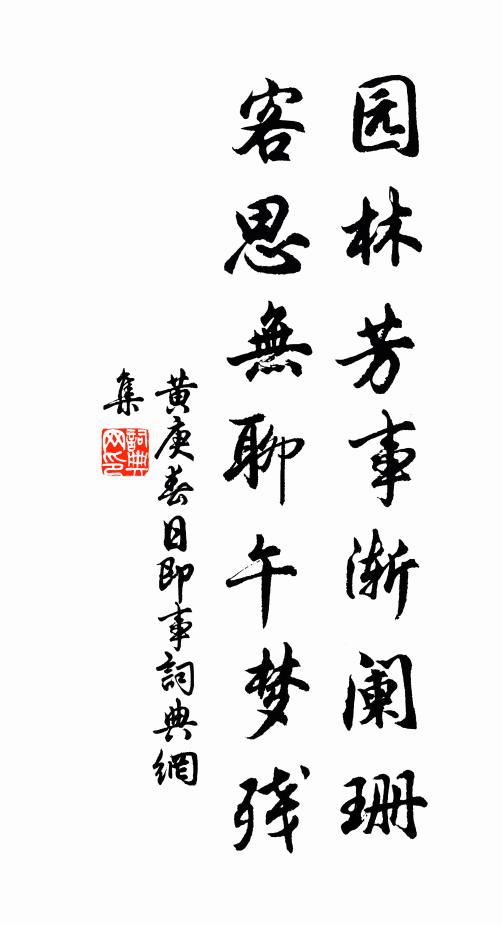 园林芳事渐阑珊
客思無聊午梦残
黄庚春日即事詞典網
集
詞典
网印